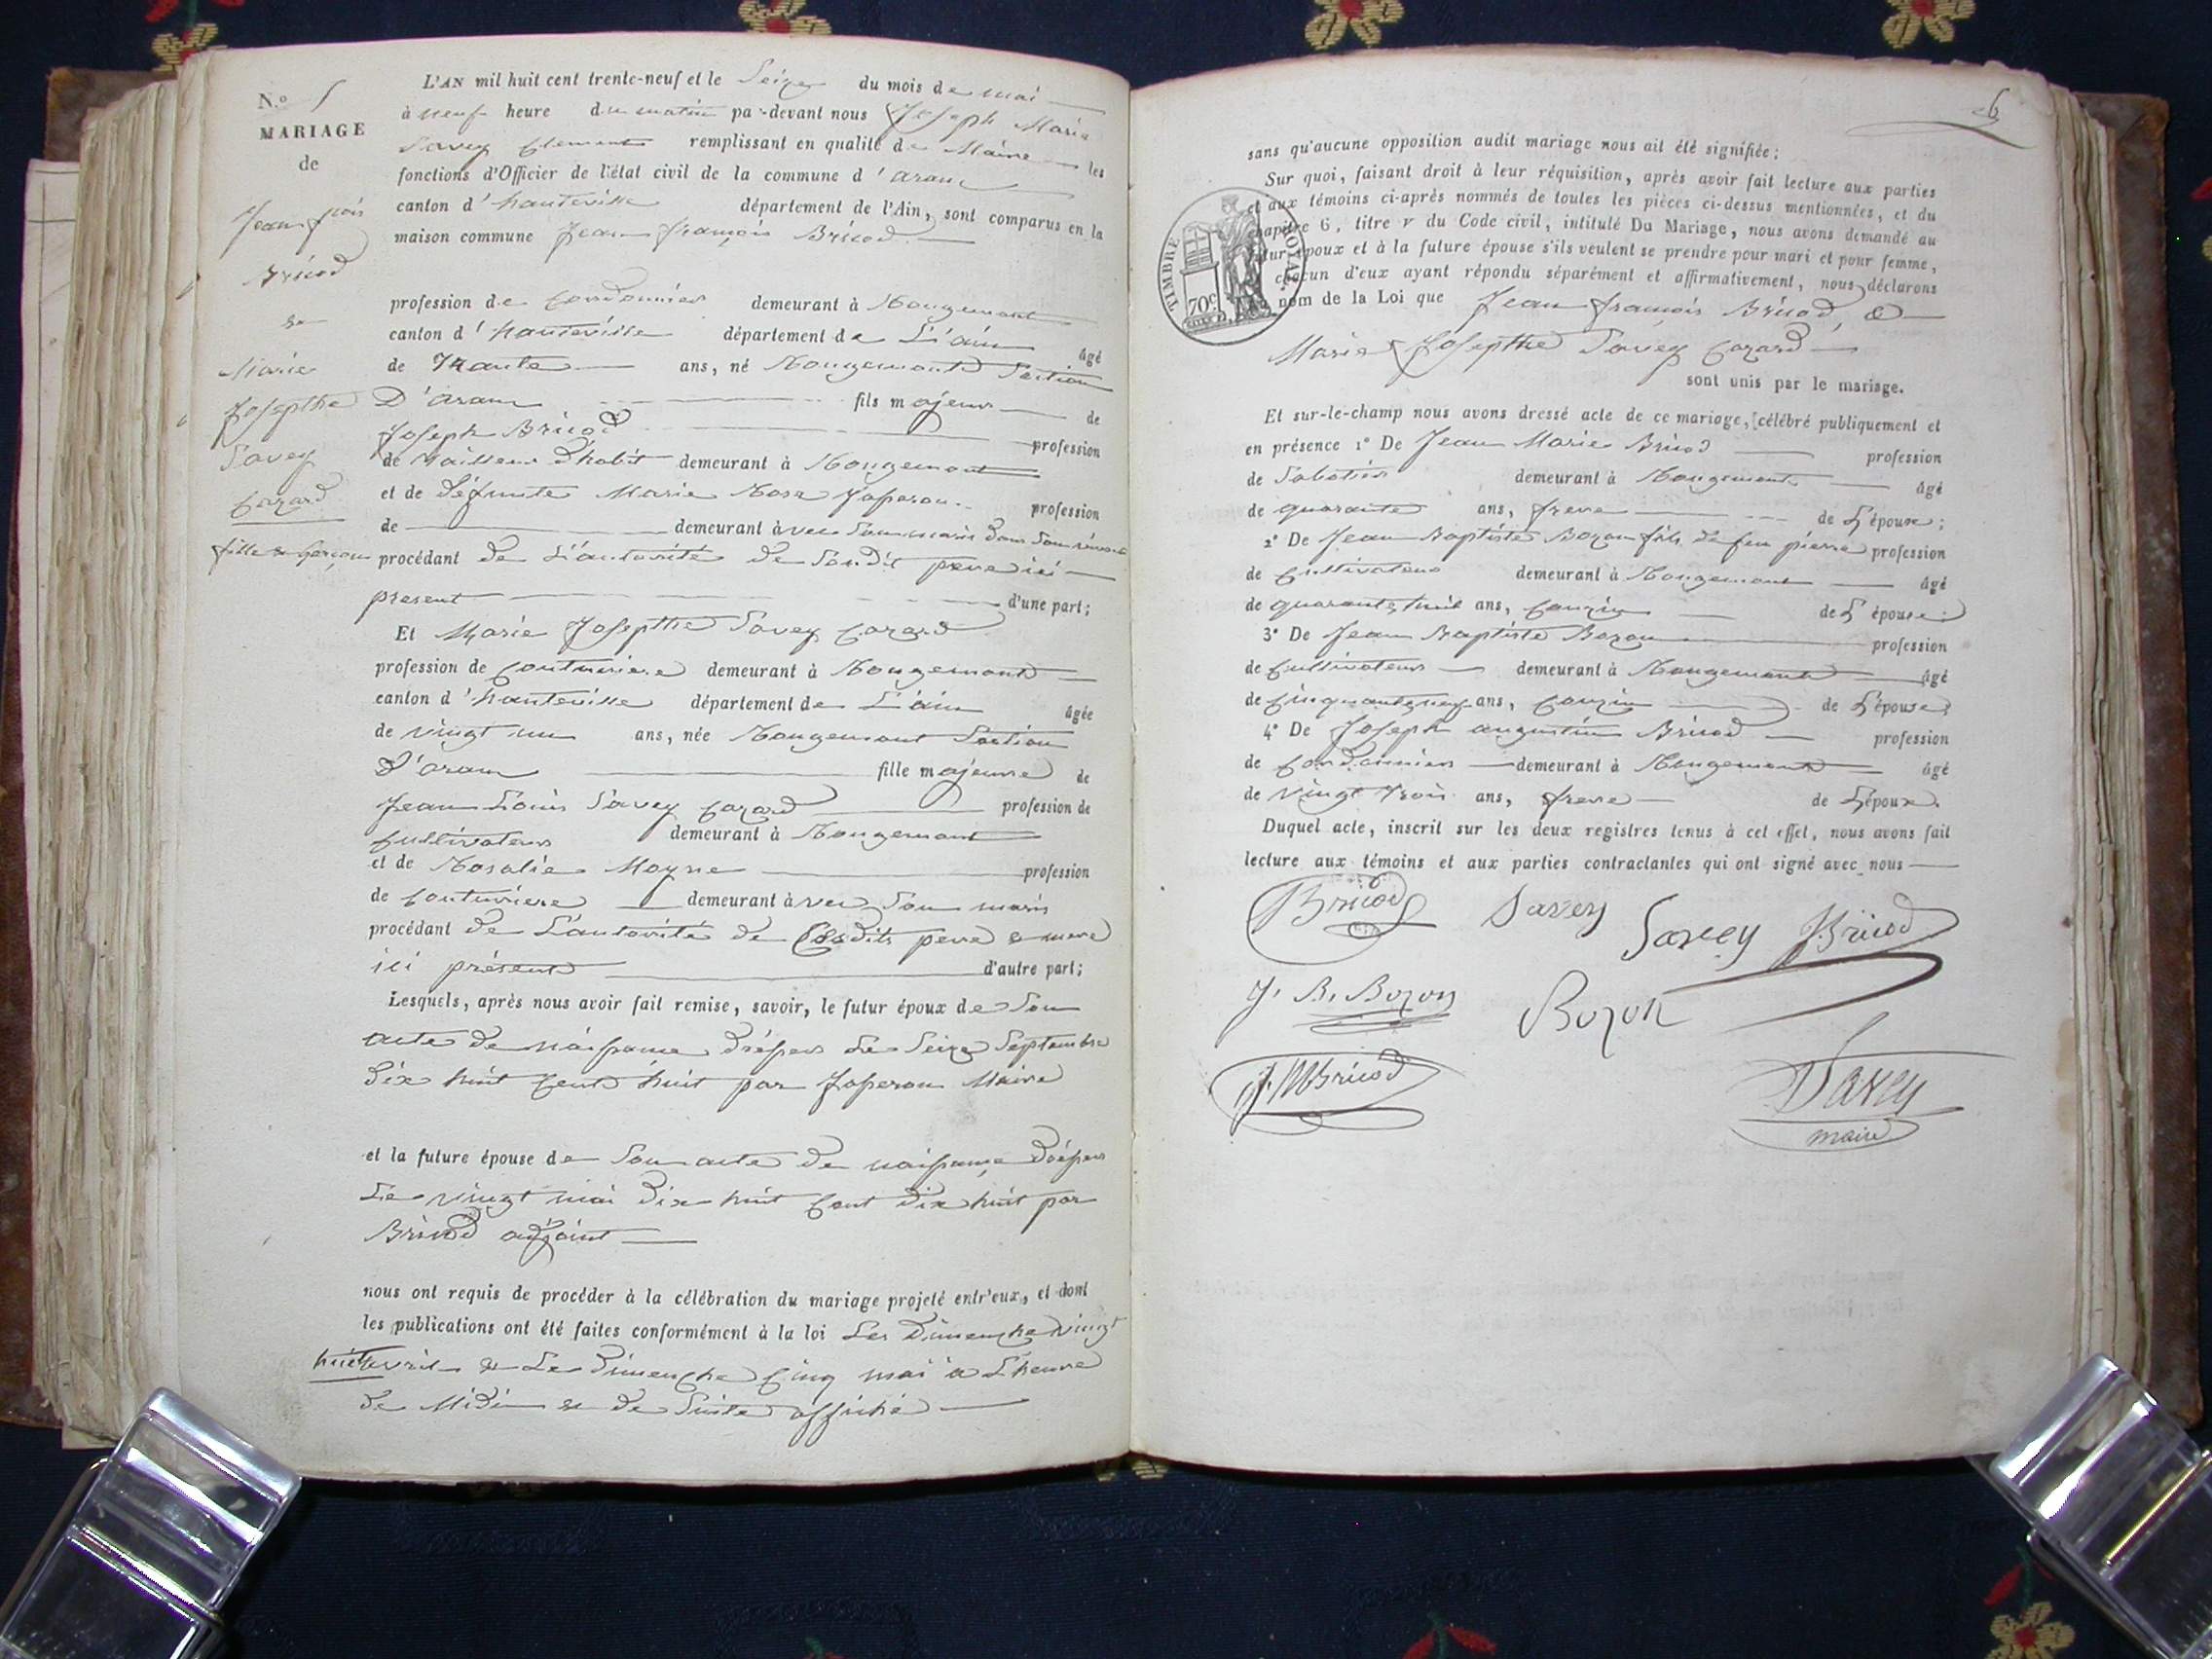 N.o 5
MARIAGE
de
Jean fçois
Bricod
&
Marie
Josepthe
Savey
Cazard
fille & garçon
L'AN mil huit cent trente-neuf et le Seize du mois de mai
à neuf heure du matin par-devant nous Joseph Marie
Savey Clement remplissant en qualité de Maire les
fonctions d'Officier de l'état civil de la commune d'aranc
canton d'hauteville département de l'Ain, sont comparus en la
maison commune Jean françois Bricod
profession de Cordonnier demeurant à Rougemont
canton d'hauteville département de L'ain âgé
de Trante ans, né Rougemont Section
D'aranc fils majeur de
Joseph Bricod profession
de Tailleur d'habit demeurant à Rougemont
et de défunte Marie Rose Japeron profession
de demeurant avec Son mari dans Son vivant
procédant de L'autorité de Sondit pere ici
present d'une part;
Et Marie Josepthe Savey Cazard
profession de Couturiere demeurant à Rougemont
canton d'hauteville département de L'ain âgée
de vingt un ans, née Rougemont Section
D'aranc fille majeure de
Jean Louis Savey Cazard profession de
Cultivateur demeurant à Rougemont
et de Rosalie Moyne profession
de Couturiere demeurant avec Son maris
procédant de L'autorité de Cesdits pere & mere
ici présent d'autre part;
Lesquels, après nous avoir fait remise, savoir, le futur époux de Son
acte de naissance dréssés Le Seize Septembre
dix huit Cent huit par Japeron Maire
et la future épouse de Son acte de naissance dréssés
Le vingt mai dix huit Cent dix huit par
Bricod adjoint
nous ont requis de procéder à la célébration du mariage projeté entr'eux, et dont
les publications ont été faites conformément à la loi Les Dimenche vingt
huit avril & Le Dimenche Cinq mai a L'heure
de Midi & de Suite affiché
6
sans qu'aucune opposition audit mariage nous ait été signifiée;
Sur quoi, faisant droit à leur réquisition, après avoir fait lecture aux parties
et aux témoins ci-après nommés de toutes les pièces ci-dessus mentionnées, et du
chapitre 6, titre v du Code civil, intitulé Du Mariage, nous avons demandé au
futur époux et à la future épouse s'ils veulent se prendre pour mari et pour femme,
chacun d'eux ayant répondu séparément et affirmativement, nous déclarons
au nom de la Loi que Jean françois Bricod, &
TIMBRE ROYAL
70c
Marie Josepthe Savey Cazard
sont unis par le mariage.
Et sur-le-champ nous avons dressé acte de ce mariage, célébré publiquement et
en présence 1° De Jean Marie Bricod profession
de Sabotier demeurant à Rougemont âgé
de quarante ans, frere de L'époux;
2° De Jean Baptiste Bozon fils de feu pierre profession
de Cultivateur demeurant à Rougemont âgé
de quarante huit ans, Couzin de L'épouse
3° De Jean Baptiste Bozon profession
de Cultivateur demeurant à Rougemont âgé
de Cinquante neuf ans, Couzin de L'épouse
4° De Joseph augustin Bricod profession
de Cordonnier demeurant à Rougemont âgé
de vingt trois ans, frere de L'époux.
Duquel acte, inscrit sur les deux registres tenus à cet effet, nous avons fait
lecture aux témoins et aux parties contractantes qui ont signé avec nous
Bricod Savey Savey Bricod
J. B. Bozon Bozon
J. M Bricod Savey
maire